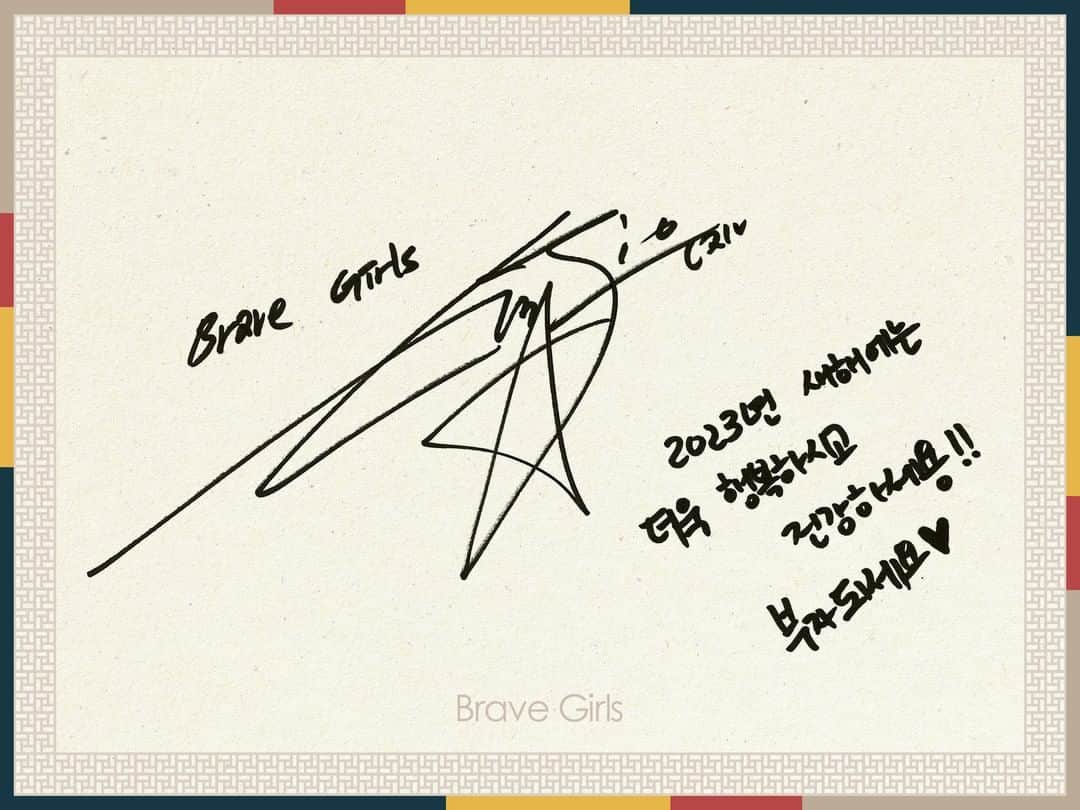 Brave Girls
2023년 새해에는
더욱 행복하시고
건강하세용!!
부자되세요♥
Brave Girls